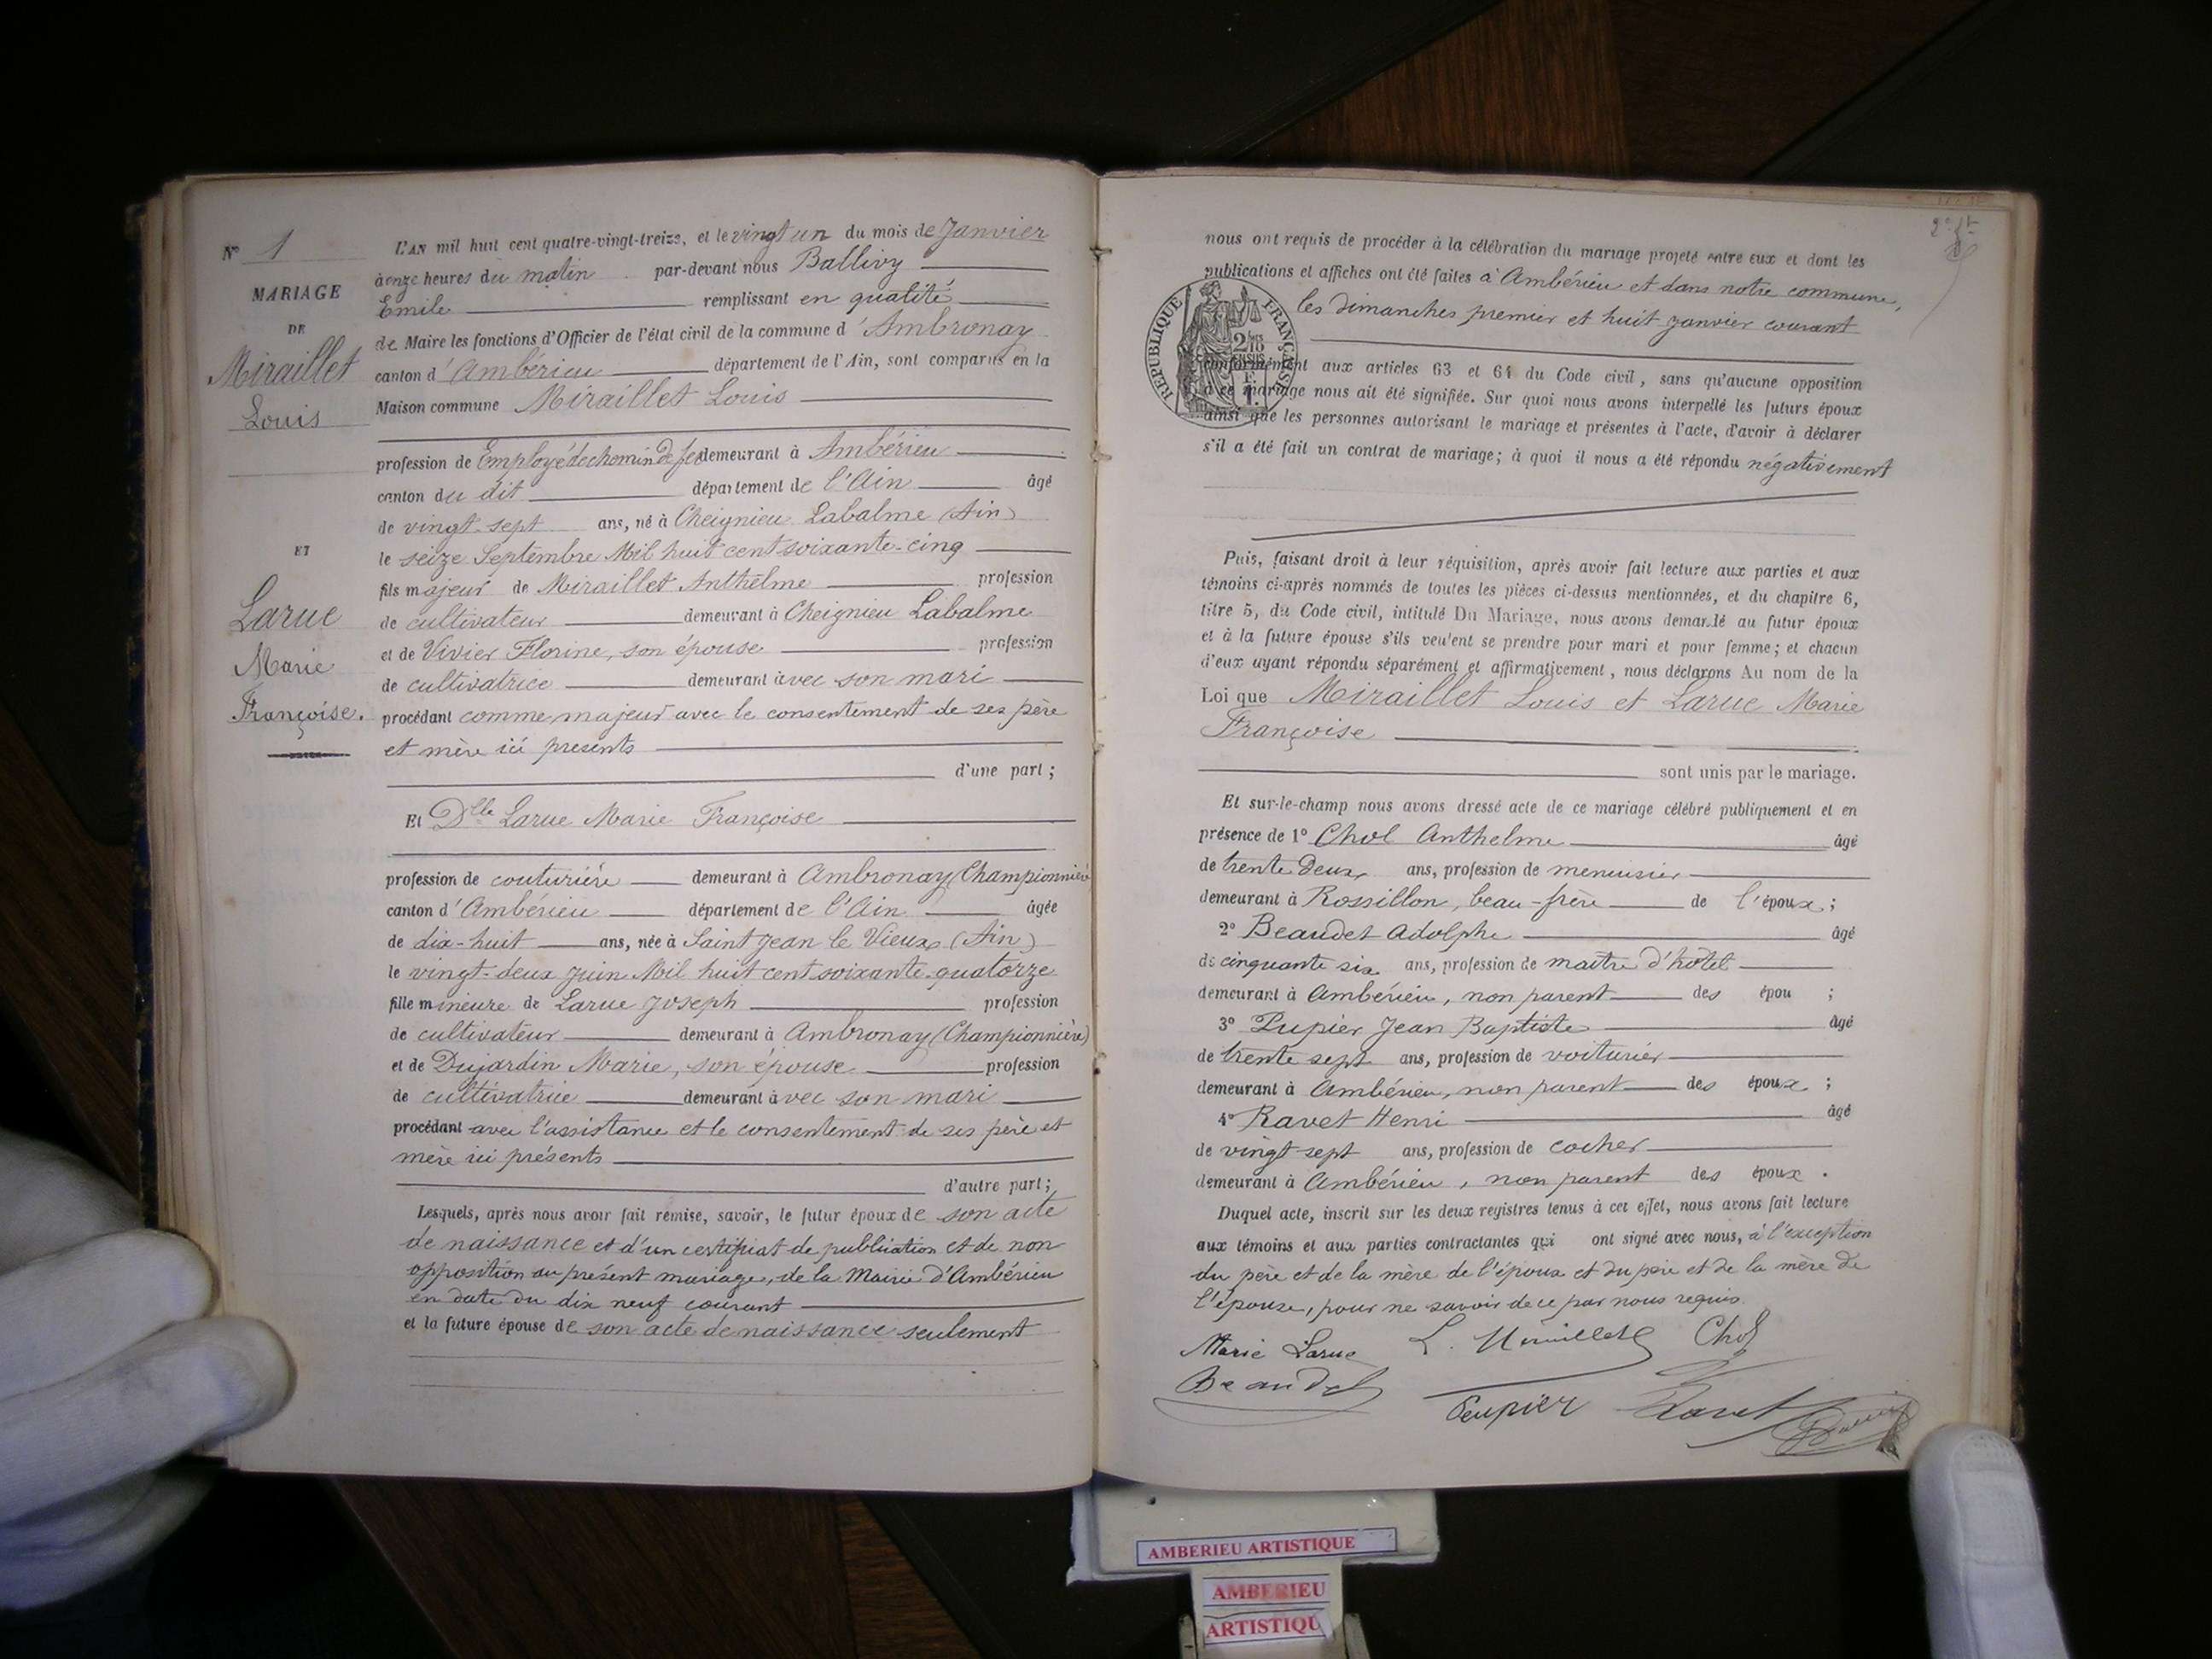 N° 1
MARIAGE
DE
Miraillet
Louis
ET
Larue
Marie
Françoise.
L'AN mil huit cent quatre-vingt-treize, et le vingt un du mois de Janvier
à onze heures du matin par-devant nous Ballivy
Emile remplissant en qualité
de Maire les fonctions d'Officier de l'état civil de la commune d'Ambronay
canton d'Ambérieu département de l'Ain, sont comparus en la
Maison commune Miraillet Louis
profession de Employé de chemin de fer demeurant à Ambérieu
canton du dit département de l'Ain âgé
de vingt-sept ans, né à Cheignieu Labalme (Ain)
le seize Septembre Mil huit cent soixante-cinq
fils majeur de Miraillet Anthelme profession
de cultivateur demeurant à Cheignieu Labalme
et de Vivier Florine, son épouse profession
de cultivatrice demeurant avec son mari
procédant comme majeur avec le consentement de ses père
et mère ici presents
d'une part;
Et Dlle Larue Marie Françoise
profession de couturière demeurant à Ambronay (Championnière
canton d'Ambérieu département de l'Ain âgée
de dix-huit ans, née à Saint Jean le Vieux (Ain)
le vingt-deux Juin Mil huit cent soixante-quatorze
fille mineure de Larue Joseph profession
de cultivateur demeurant à Ambronay (Championnière)
et de Dujardin Marie, son épouse profession
de cultivatrice demeurant avec son mari
procédant avec l'assistance et le consentement de ses père et
mère ici présents
d'autre part;
Lesquels, après nous avoir fait remise, savoir, le futur époux de son acte
de naissance et d'un certificat de publication et de non
opposition au présent mariage, de la Mairie d'Ambérieu
en date du dix neuf courant
et la future épouse de son acte de naissance seulement
nous ont requis de procéder à la célébration du mariage projeté entre eux et dont les
publications et affiches ont été faites à Ambérieu et dans notre commune,
les dimanches premier et huit janvier courant
RÉPUBLIQUE FRANÇAISE
conformément aux articles 63 et 64 du Code civil, sans qu'aucune opposition
à ce mariage nous ait été signifiée. Sur quoi nous avons interpellé les futurs époux
ainsi que les personnes autorisant le mariage et présentes à l'acte, d'avoir à déclarer
s'il a été fait un contrat de mariage; à quoi il nous a été répondu négativement
Puis, faisant droit à leur réquisition, après avoir fait lecture aux parties et aux
témoins ci-après nommés de toutes les pièces ci-dessus mentionnées, et du chapitre 6,
titre 5, du Code civil, intitulé Du Mariage, nous avons demandé au futur époux
et à la future épouse s'ils veulent se prendre pour mari et pour femme; et chacun
d'eux ayant répondu séparément et affirmativement, nous déclarons Au nom de la
Loi que Miraillet Louis et Larue Marie
Françoise
sont unis par le mariage.
Et sur-le-champ nous avons dressé acte de ce mariage célébré publiquement et en
présence de 1° Chol Anthelme âgé
de trente deux ans, profession de menuisier
demeurant à Rossillon, beau-frère de l'époux;
2° Beaudet Adolphe âgé
de cinquante six ans, profession de maître d'hôtel
demeurant à Ambérieu, non parent des épou ;
3° Pupier Jean Baptiste âgé
de trente sept ans, profession de voiturier
demeurant à Ambérieu, non parent des époux ;
4° Ravet Henri âgé
de vingt sept ans, profession de cocher
demeurant à Ambérieu, non parent des époux .
Duquel acte, inscrit sur les deux registres tenus à cet effet, nous avons fait lecture
aux témoins et aux parties contractantes qui ont signé avec nous, à l'exception
du père et de la mère de l'époux et du père et de la mère de
l'épouse, pour ne savoir de ce par nous requis.
Marie Larue L. Miraillet Chol
Beaudet Peupier Ravet
AMBERIEU ARTISTIQUE
AMBERIEU
ARTISTIQU